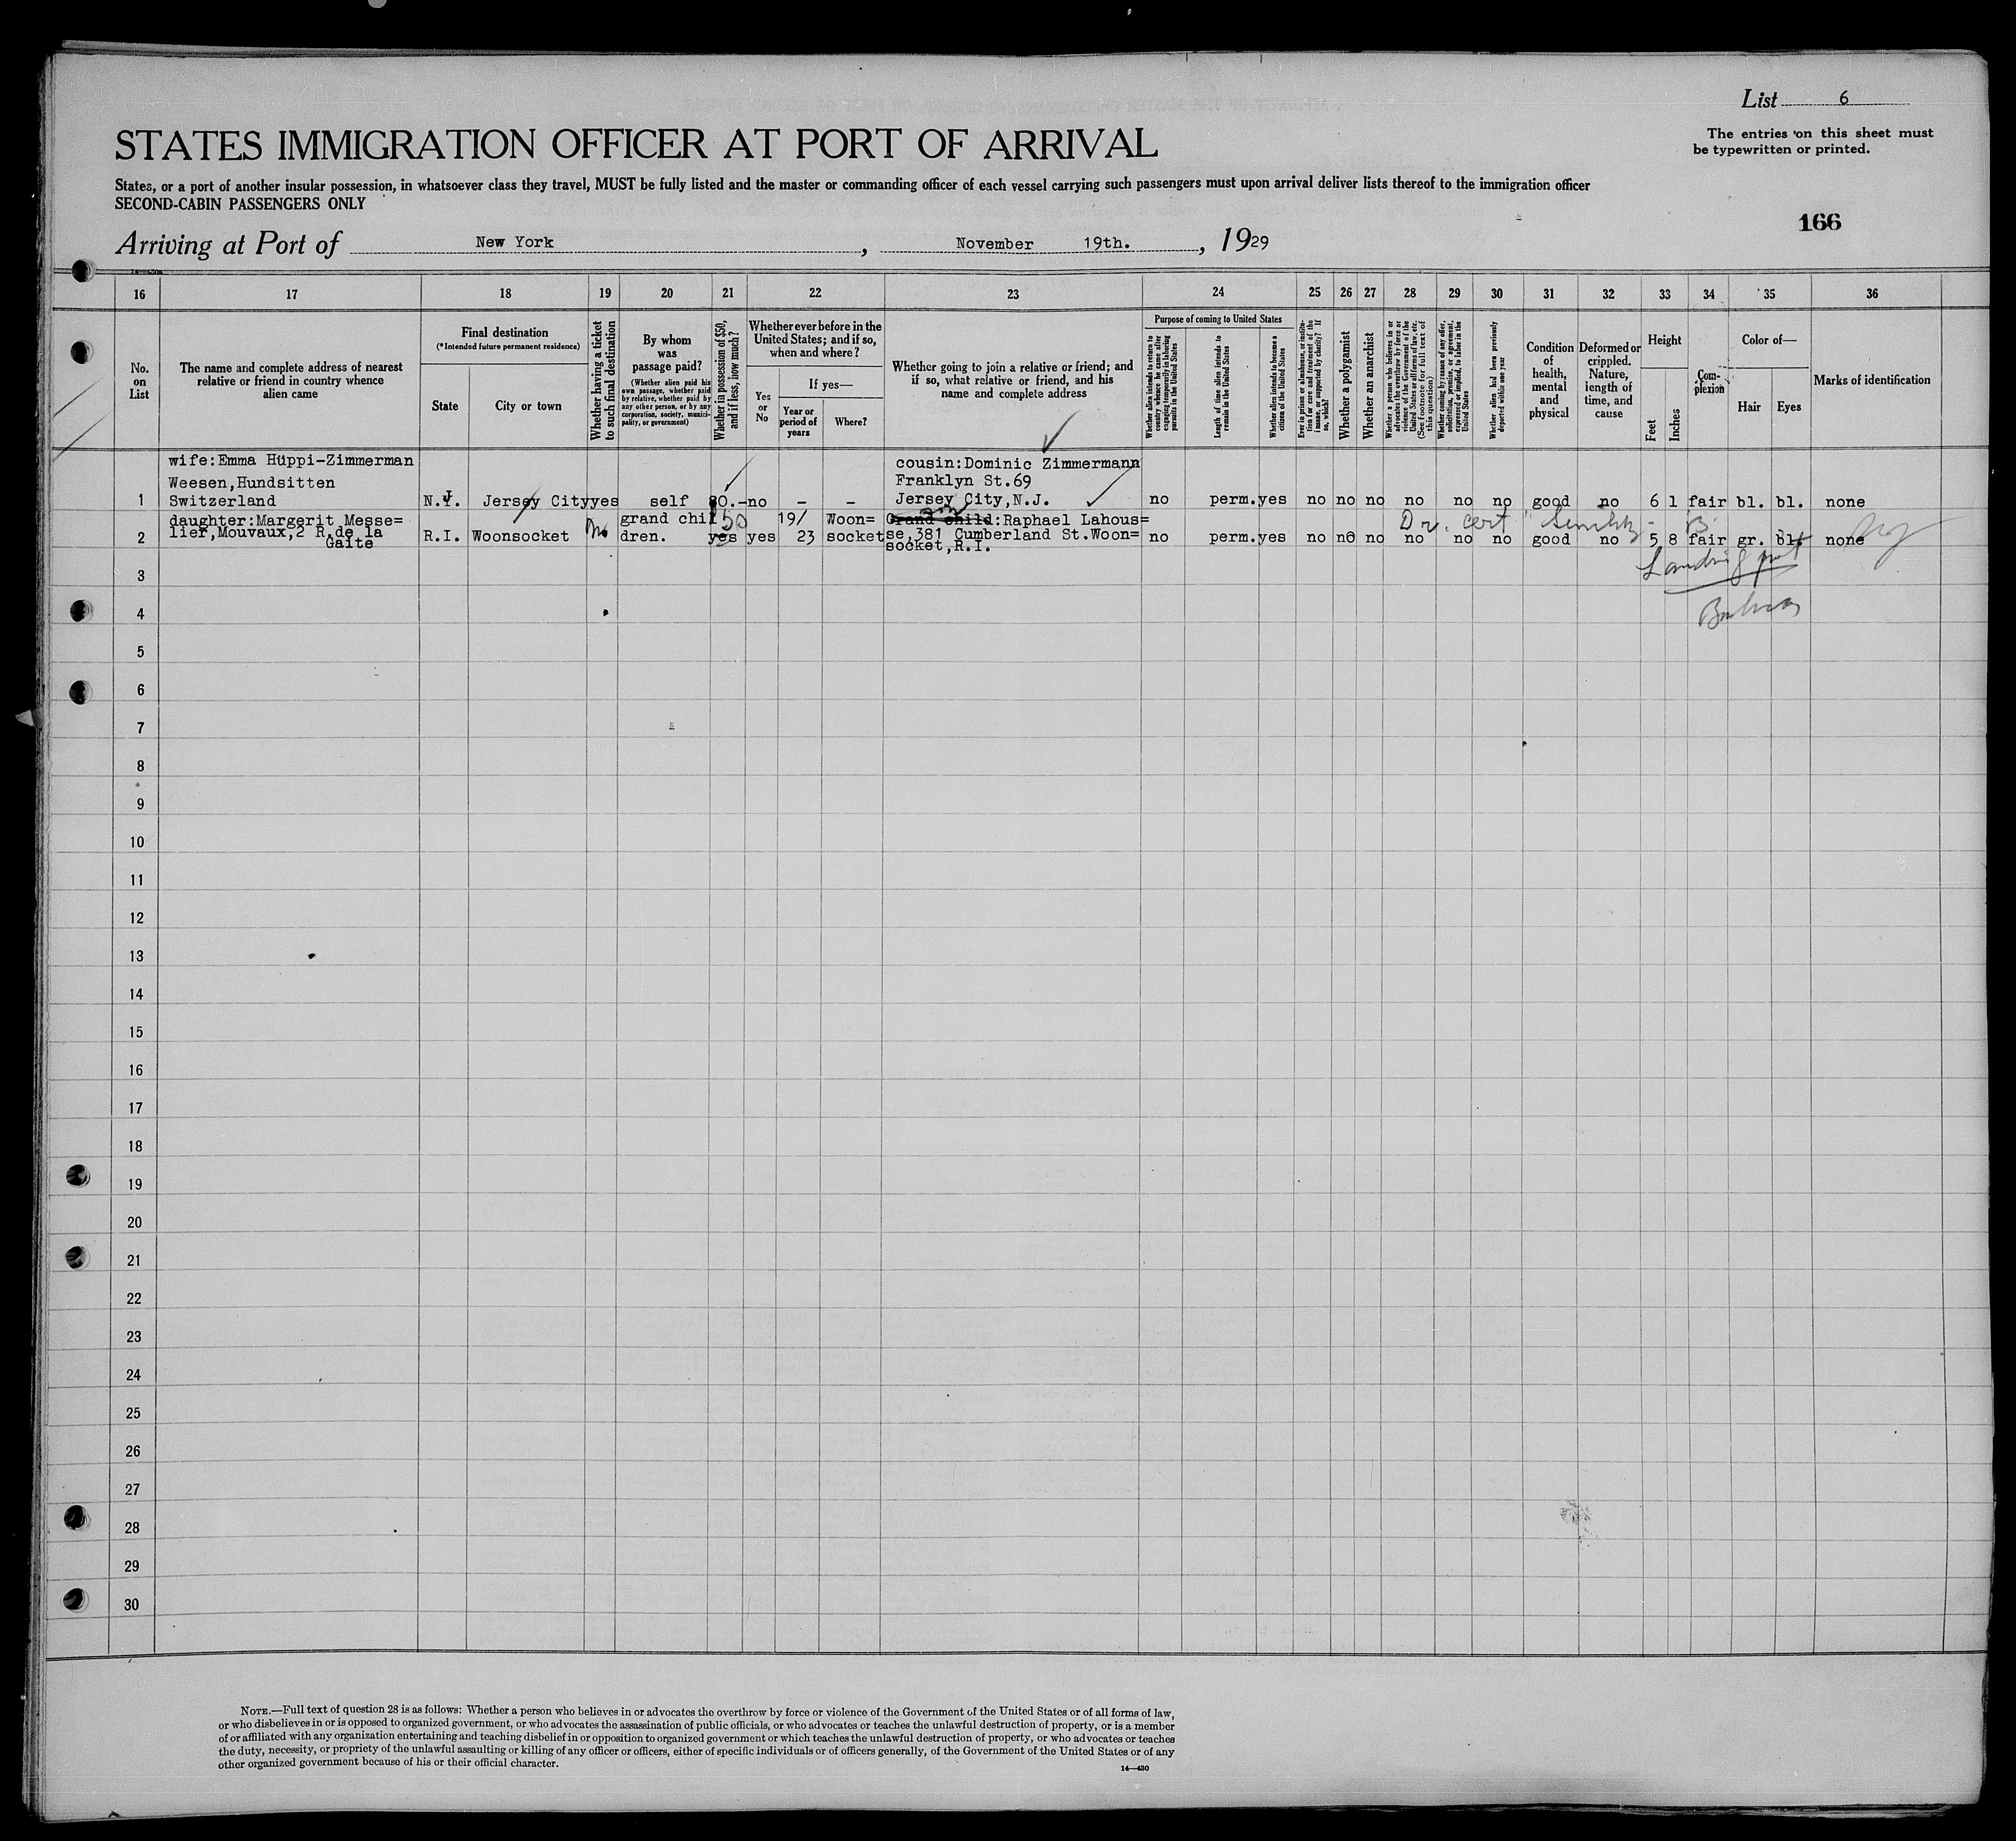 List 6
The entries on this sheet must
be typewritten or printed.
STATES IMMIGRATION OFFICER AT PORT OF ARRIVAL
States, or a port of another insular possession, in whatsoever class they travel, MUST be fully listed and the master or commanding officer of each vessel carrying such passengers must upon arrival deliver lists thereof to the immigration officer
SECOND-CABIN PASSENGERS ONLY
166
Arriving at Port of New York, November 19th., 1929
16 17 18 19 20 21 22 23 24 25 26 27 28 29 30 31 32 33 34 35 36
No.
on
List
The name and complete address of nearest
relative or friend in country whence
alien came
Final destination
(*Intended future permanent residence)
State
City or town
Whether having a ticket
to such final destination
By whom
was
passage paid?
(Whether alien paid his
own passage, whether paid
by relative, whether paid by
any other person, or by any
corporation, society, munici-
pality, or government)
Whether in possession of $50,
and if less, how much?
Whether ever before in the
United States; and if so,
when and where?
Yes
or
No
If yes—
Year or
period of
years
Where?
Whether going to join a relative or friend; and
if so, what relative or friend, and his
name and complete address
Purpose of coming to United States
Whether alien intends to return to
country whence he came after
engaging temporarily in laboring
pursuits in the United States
Length of time alien intends to
remain in the United States
Whether alien intends to become a
citizen of the United States
Ever in prison or almshouse, or institu-
tion for care and treatment of the
insane, or supported by charity? If
so, which?
Whether a polygamist
Whether an anarchist
Whether a person who believes in or
advocates the overthrow by force or
violence of the Government of the
United States or all forms of law, etc.
(See footnote for full text of
this question)
Whether coming by reason of any offer,
solicitation, promise, or agreement,
expressed or implied, to labor in the
United States
Whether alien had been previously
deported within one year
Condition
of
health,
mental
and
physical
Deformed or
crippled.
Nature,
length of
time, and
cause
Height
Feet
Inches
Com-
plexion
Color of—
Hair
Eyes
Marks of identification
wife:Emma Hüppi-Zimmerman
Weesen,Hundsitten
Switzerland
1 N.J. Jersey City yes self 80.- no - -
cousin:Dominic Zimmermann
Franklyn St.69
Jersey City,N.J.
no perm. yes no no no no no no good no 6 1 fair bl. bl. none
daughter:Margerit Messe=
lier,Mouvaux,2 R.de la
Gaite
2 R.I. Woonsocket no
grand chil
dren.
50
yes yes
19/
23
Woon=
socket
Grand child:Raphael Lahous=
se,381 Cumberland St.Woon=
socket,R.I.
Dr. cert Senility - B
no perm. yes no no no no no no good no 5 8 fair gr. bl. none
3
4
5
6
7
8
9
10
11
12
13
14
15
16
17
18
19
20
21
22
23
24
25
26
27
28
29
30
NOTE.—Full text of question 28 is as follows: Whether a person who believes in or advocates the overthrow by force or violence of the Government of the United States or of all forms of law,
or who disbelieves in or is opposed to organized government, or who advocates the assassination of public officials, or who advocates or teaches the unlawful destruction of property, or is a member
of or affiliated with any organization entertaining and teaching disbelief in or opposition to organized government or which teaches the unlawful destruction of property, or who advocates or teaches
the duty, necessity, or propriety of the unlawful assaulting or killing of any officer or officers, either of specific individuals or of officers generally, of the Government of the United States or of any
other organized government because of his or their official character.
14—430